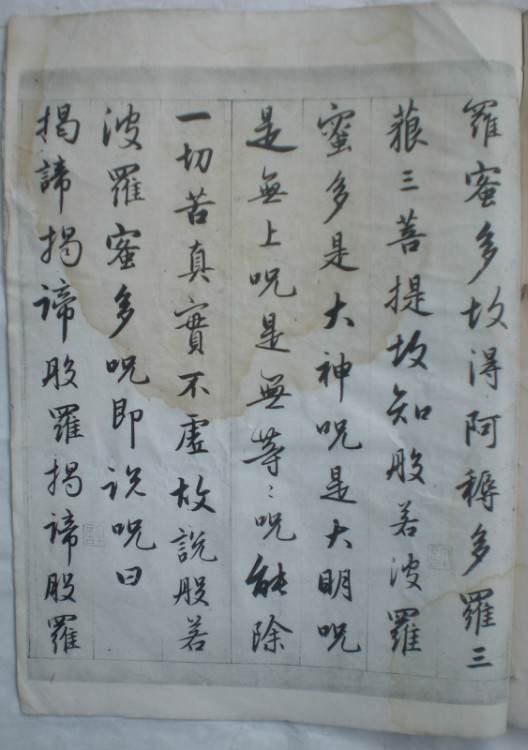 羅蜜多故得阿耨多羅三
藐三菩提故知般若波羅
蜜多是大神呪是大明呪
是無上呪是無等〻呪能除
一切苦真實不虛故説般若
波羅蜜多呪即説呪曰
揭諦揭諦般羅揭諦般羅